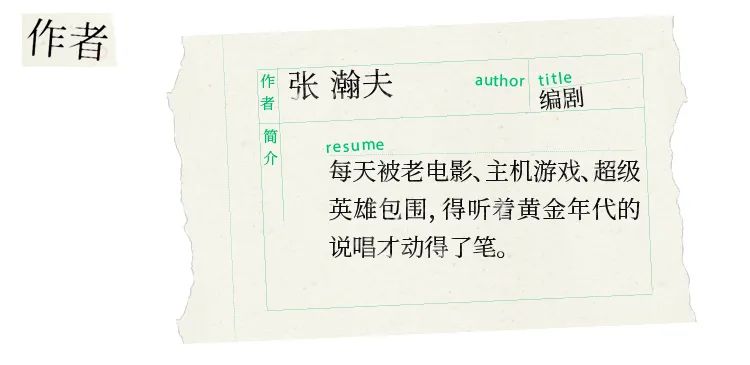 作者
作者
张 瀚夫
author
title
编剧
简介
resume
每天被老电影、主机游戏、超级
英雄包围，得听着黄金年代的
说唱才动得了笔。